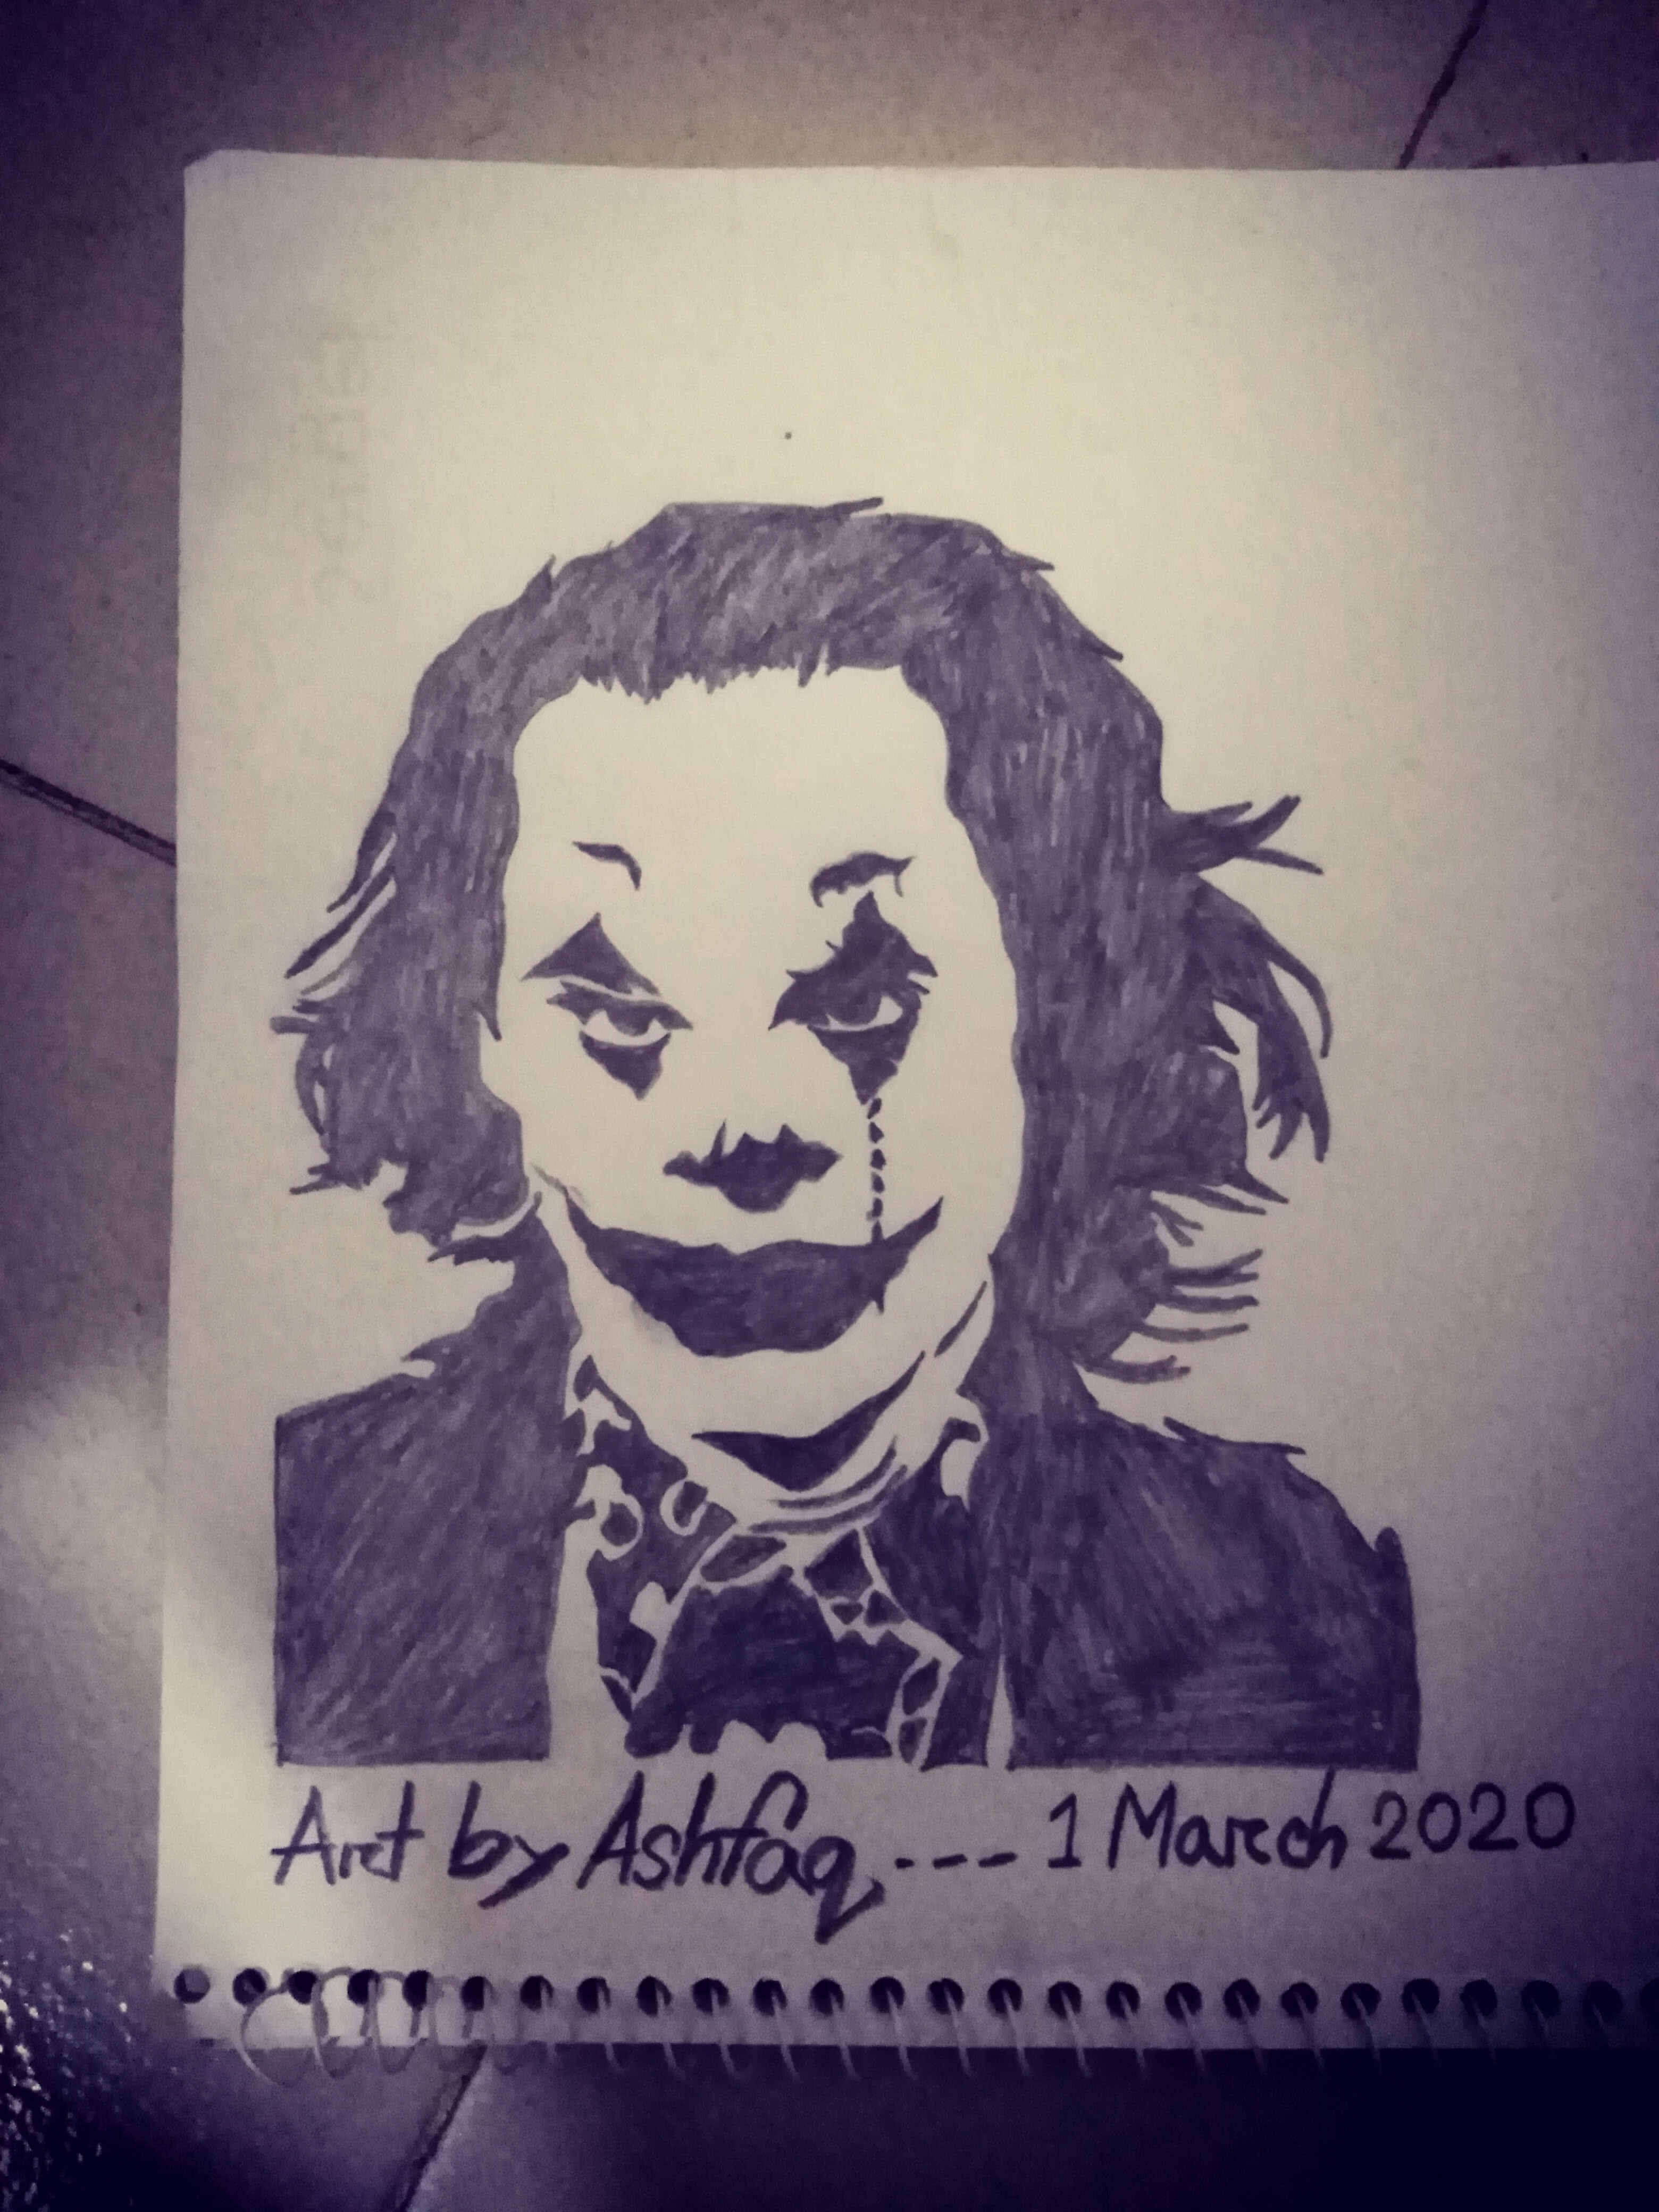 Art by Ashfaq, --- 1 March 2020